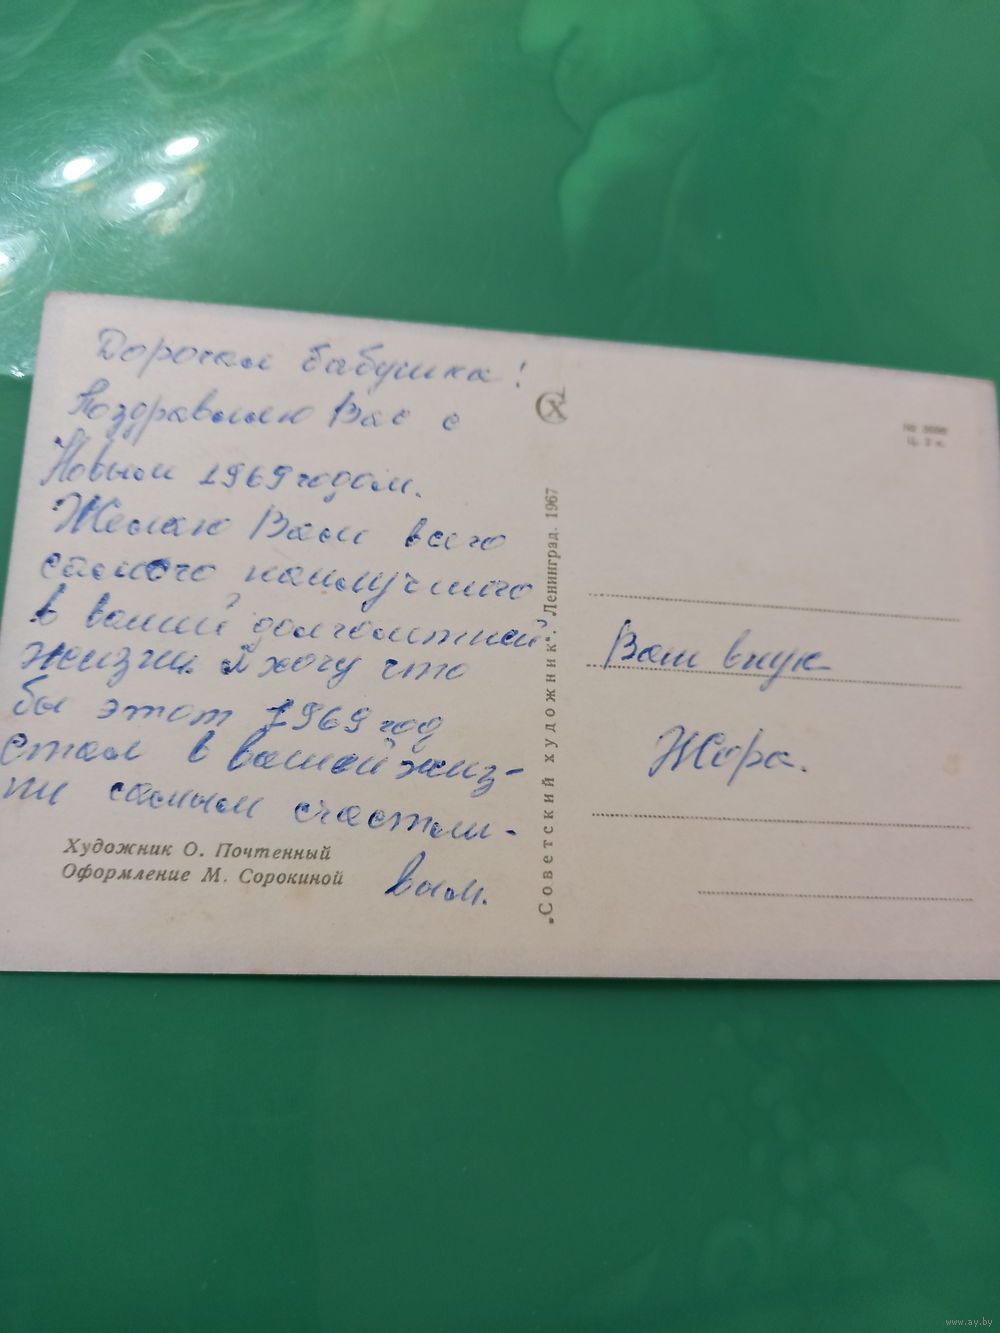 Дорогая бабушка!
Поздравляю Вас с
Новым 1969 годом.
Желаю Вам всего
самого наилучшего
в вашей долголетней
жизни. Я хочу что
бы этот 1969 год
стал в вашей жиз-
ни самым счастли-
вым.
Художник О. Почтенный
Оформление М. Сорокиной
„Советский художник“. Ленинград. 1967
Ц. 3 к.
Ваш внук
Жора.
www.ay.by